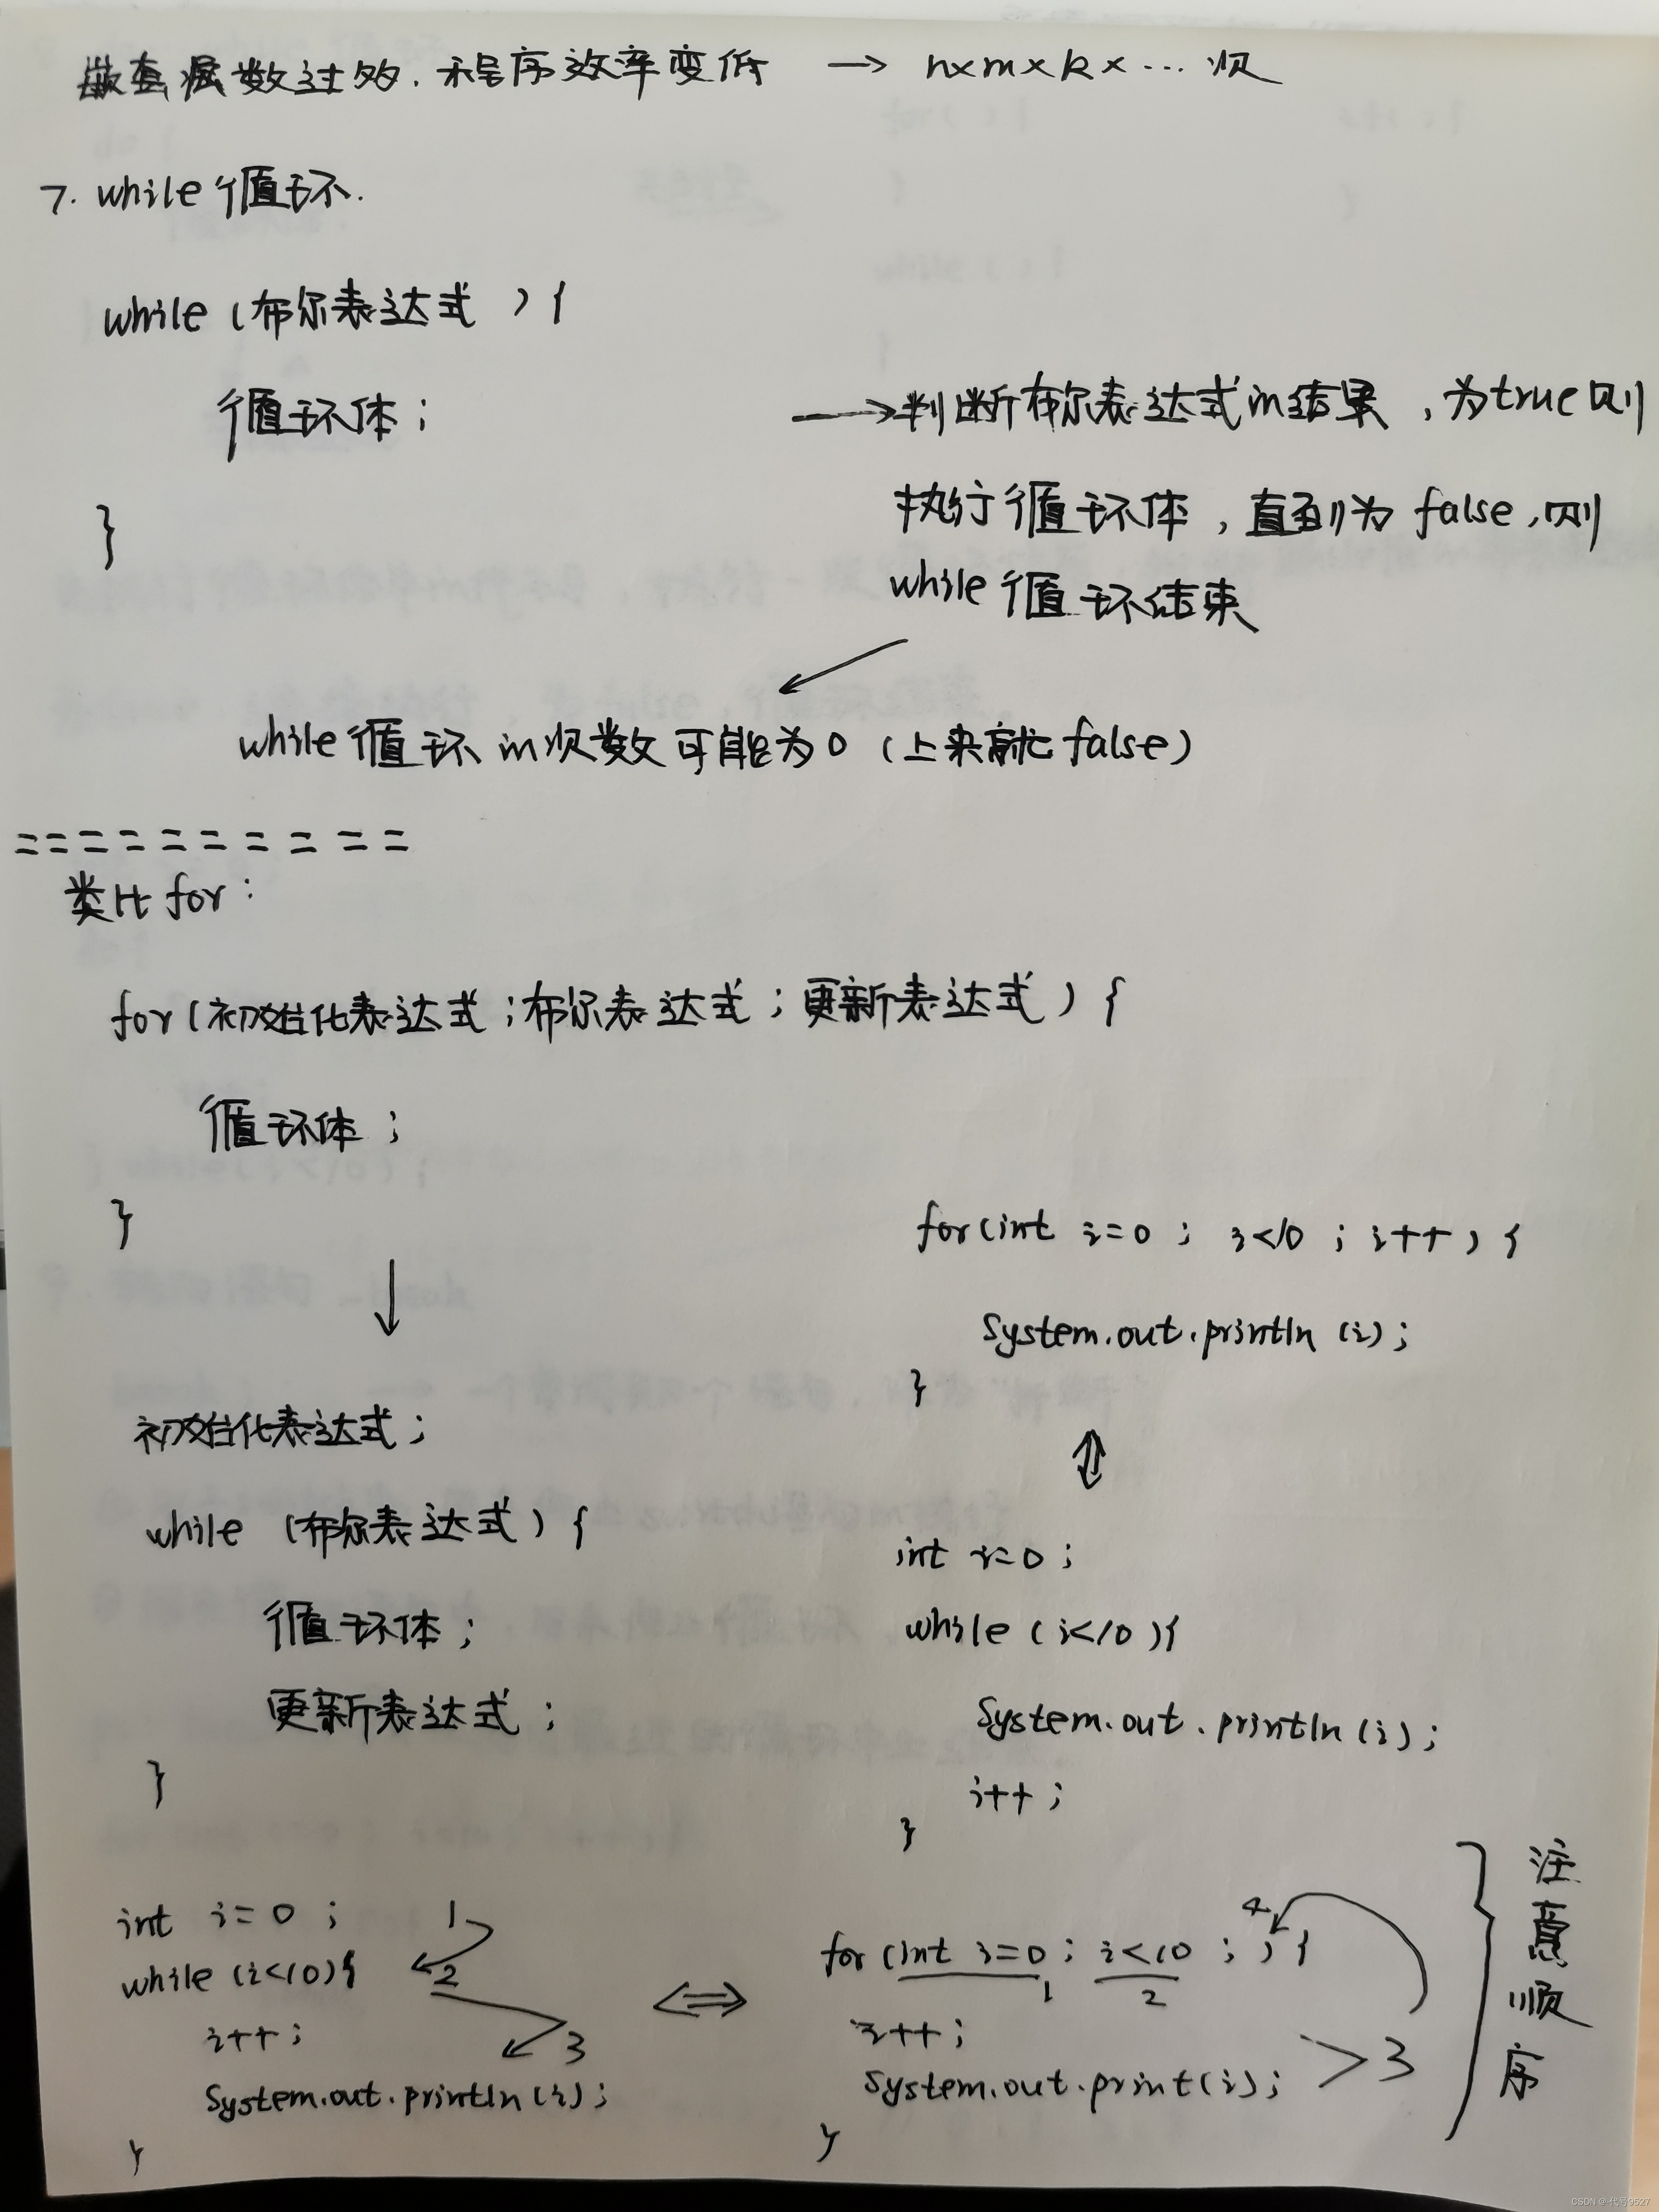 嵌套层数过多.程序效率变低 → n×m×k×…次
7. while循环.
while (布尔表达式 ) {
循环体;
}
→判断布尔表达式的结果,为true则
执行循环体,直到为 false,则
while循环结束
while循环的次数可能为0 (上来就 false)
==========
类比for:
for(初始化表达式;布尔表达式;更新表达式) {
循环体;
}
↓
初始化表达式;
while (布尔表达式) {
循环体;
更新表达式;
}
for(int i=0 ; i<10 ; i++ ) {
System.out.println (i);
}
⇕
int i=0;
while (i<10){
System.out.println(i);
i++;
}
int i=0 ; 1
while (i<10){ 2
i++; 3
System.out.println(i);
}
⇔
4
for (int i=0; i<10 ; ) {
1 2
i++;
System.out.print(i); >3
}
注意顺序
CSDN @代号9527